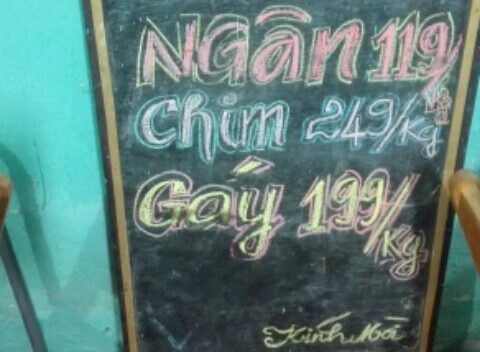 NGÂN 119/kg
Chim 249/Kg
Gáy 199/Kg
Kính Mời